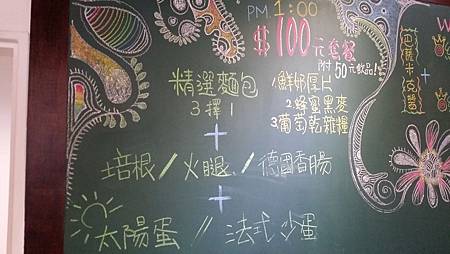 PM 1:00
$100元套餐
附50元飲品!
精選麵包
3擇1
1.鮮奶厚片
2.蜂蜜黑麥
3.葡萄乾雜糧
+
培根/火腿/德國香腸
+
太陽蛋//法式炒蛋
巴薩米克醬
+
W